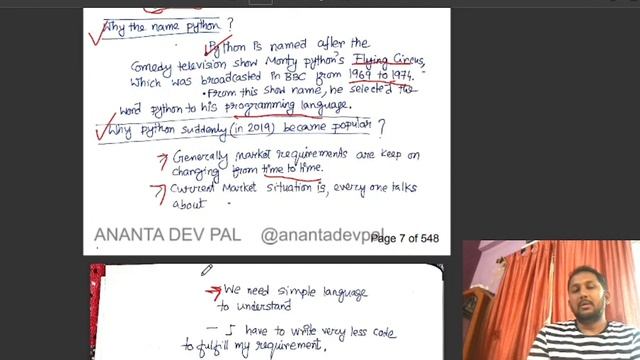 Why the name python ?
Python is named after the
Comedy television show Monty python's Flying Circus,
which was broadcasted in BBC from 1969 to 1974.
• From this show name, he selected the
word python to his programming language.
Why python suddenly (in 2019) became popular ?
→ Generally market requirements are keep on
changing from time to time.
→ Current market situation is, every one talks
about
ANANTA DEV PAL @anantadevpal
Page 7 of 548
→ We need simple language
to understand
— I have to write very less code
to fulfill my requirement.